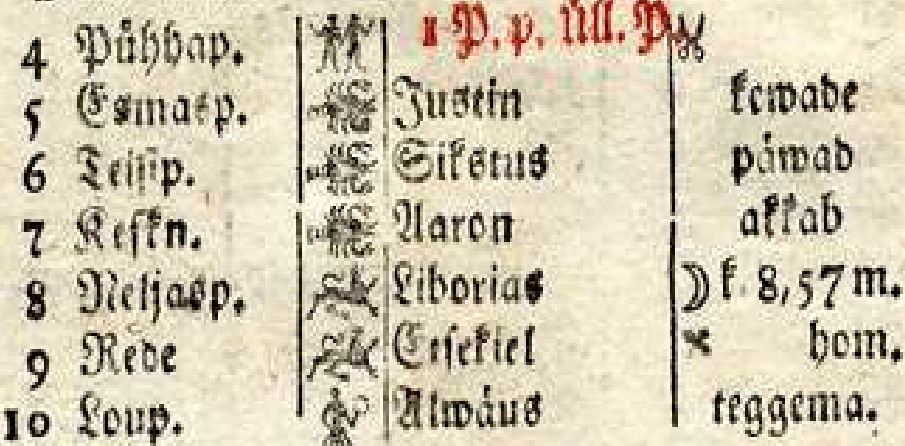 4 Pühhap. 1 P. p. üll. P.
5 Esmasp. Justin kewade
6 Teisip. Sikstus päwad
7 Keskn. Aaron akkab
8 Neljasp. Liborias ☽ k. 8,57 m.
9 Rede Esekiel hom.
10 Loup. Alwäus teggema.